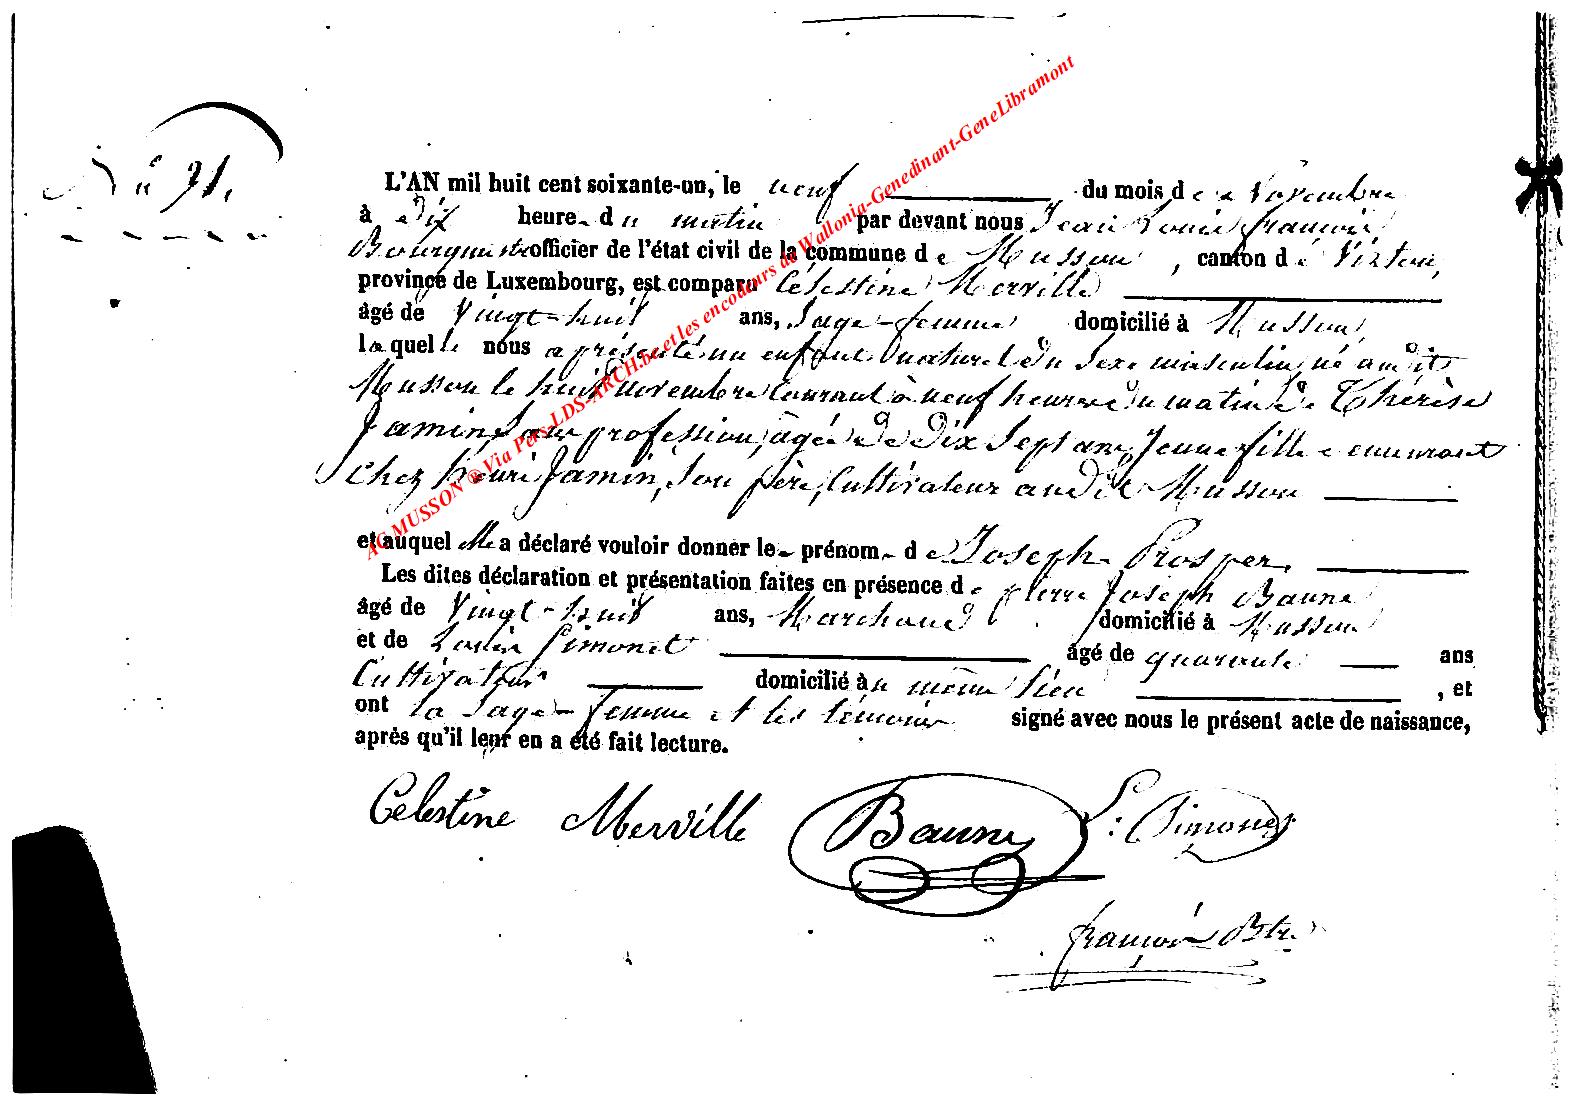 N° 31.
L'AN mil huit cent soixante-un, le neuf du mois de Novembre
à Dix heure du matin par devant nous Jean Louis françois
Bourgmestre officier de l'état civil de la commune de Musson, canton de Virton,
province de Luxembourg, est comparu Célestine Merville
âgé de Vingt-huit ans, Sage-femme domicilié à Musson,
laquelle nous a présenté un enfant naturel du Sexe masculin, né audit
Musson le huit novembre Courant à neuf heures du matin de Thérèse
Jamin, Sans profession, âgée de dix Sept ans, Jeune fille demeurant
chez henri Jamin, Son père, Cultivateur audit Musson
et auquel elle a déclaré vouloir donner le prénom de Joseph Prosper.
Les dites déclaration et présentation faites en présence de pierre Joseph Baune
âgé de Vingt-huit ans, Marchand domicilié à Musson
et de Louis Simonet âgé de quarante ans
Cultivateur domicilié au même lieu, et
ont la Sage-femme et les témoins signé avec nous le présent acte de naissance,
après qu'il leur en a été fait lecture.
Célestine Merville Baune L: Simonet
françois Btre
AC MUSSON ® Via Pers-LDS-ARCH.be et les encodeurs de Wallonia-Genedinant-GeneLibramont